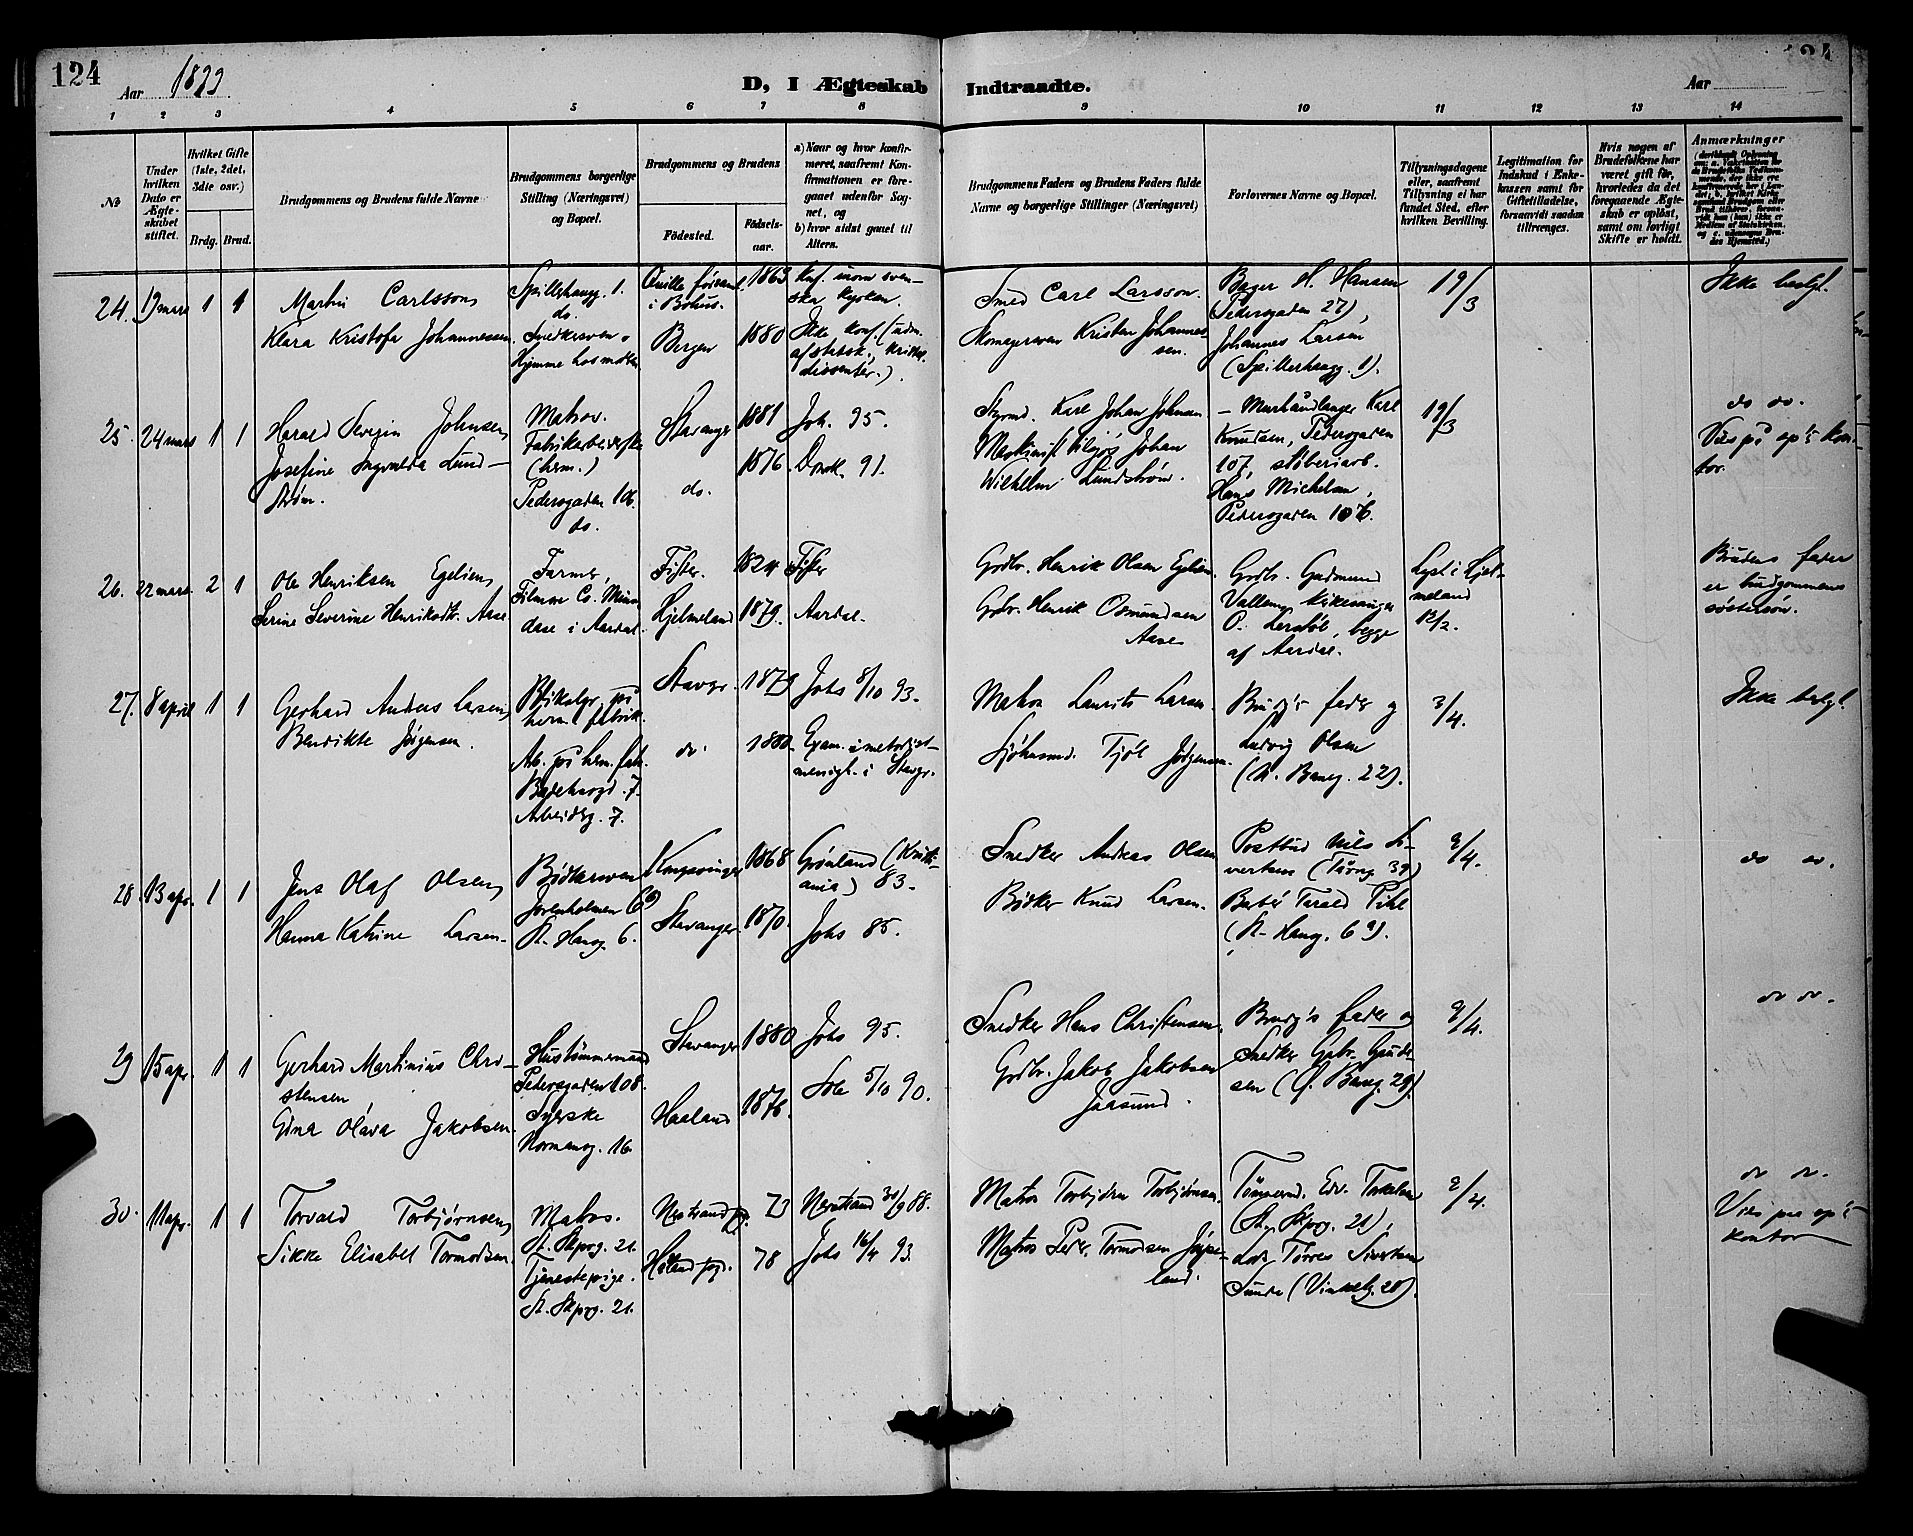 124
Aar 1899
D, I Ægteskab Indtraadte.
Aar
1 2 3 4 5 6 7 8 9 10 11 12 13 14
No
Under hvilken Dato er Ægteskabet stiftet.
Hvilket Gifte (1ste, 2det, 3die osv.)
Brdg. Brud.
Brudgommens og Brudens fulde Navne
Brudgommens borgerlige Stilling (Næringsvei) og Bopæl.
Brudgommens og Brudens
Födested.
Födselsaar.
a) Naar og hvor konfirmeret, saafremt Konfirmationen er foregaaet udenfor Sognet, og
b) hvor sidst gaaet til Alters.
Brudgommens Faders og Brudens Faders fulde Navne og borgerlige Stillinger (Næringsvei)
Forlovernes Navne og Bopæl.
Tillysningsdagene eller, saafremt Tillysning ei har fundet Sted, efter hvilken Bevilling.
Legitimation for Indskud i Enkekassen samt for Giftetilladelse, forsaavidt saadan tiltrænges.
Hvis nogen af Brudefolkene har været gift för, hvorledes da det foregaaende Ægteskab er oplöst, samt om lovligt Skifte er holdt.
Anmærkninger
24. 19 mars 1 1
Martin Carlsson,
Klara Kristofa Johannessen
Spillehaugg. 1.
do.
Snedkersven.
Hjemme hos modren.
Qville församl.
i Bohus.
Bergen
1863
1880
Knf. inom svenska kyrkan.
Ikke konf. (udm.
af statsk., kristel.
dissenter.).
Smed Carl Larsson.
Skomagersven Kristen Johannessen.
Bager H. Hansen
(Pedersgaden 27),
Johannes Larsen
(Spillerhaugg. 1).
19/3
Ikke beslgt.
25. 24 mars 1 1
Harald Severin Johnsen,
Josefine Ingvalda Lundström.
Matros.
Fabrikarbeiderske
(herm.)
Pedersgaden 106.
do.
Stavanger
do.
1881
1876
Joh. 95.
Domk. 91.
Styrmd. Karl Johan Johnsen
Johan
Wilhelm Lundström.
Murhandlanger Karl
Knudsen, Pedersgaden
107, støberiarb.
Hans Michelsen,
Pedersgaden 106.
19/3
do do.
Vies på sp's kontor.
26. 22 mars 2 1
Ole Henriksen Egelien,
Serine Severine Henriksdt. Aase
Farmer,
Filmore Co. Minn.
dase i Aardal.
Fister.
Hjelmeland
1824
1879.
Fister
Aardal.
Grdbr. Henrik Olsen Egelien.
Grdbr. Henrik Osmundsen
Aase
Grdbr. Gudmund
Valleness, kirkesanger
O. Lerstöl, begge
af Aardal.
Lyst i Hjelmeland
12/2.
Brudens fader
er brudgommens
søstersøn.
27. 8 april 1 1
Gerhard Andreas Larsen,
Bendikte Jørgensen.
på
herm. fabrik.
Arb. på herm. fabr.
Badehusgd. 7.
Arbeidsg. 7.
Stavgr.
do.
1879
1880
Johs 8/10 93.
Exam. i metodistmenigh. i Stavgr.
Matros Laurits Larsen.
Sjömand. Tjöl Jørgensen.
Brudg's fader og
Ludvig Olsen
(N. Baneg. 22).
3/4.
Ikke beslgt.
28. 13 apr. 1 1
Jens Olaf Olsen,
Hanna Katrine Larsen.
Bødkersvend
Jorenholmen 6 a)
St. Haug. 6.
Kongsvinger
Stavanger.
1868
1870.
Grønland (Kristiania) 83.
Johs 85.
Snedker Andreas Olsen
Bødker Knud Larsen.
Postbud Nils Sivertsen (Taarng 39)
Barber Tarald Pihl
(St. Haug. 6 a).
9/4.
do do.
29 15 apr. 1 1
Gerhard Martinius Christensen,
Gina Olava Jakobsen.
Hustømmermand
Pedersgaden 108.
Syerske
Normannsg. 16.
Stavanger
Haaland
1880
1876.
Johs 95.
Sole 5/10 90.
Snedker Hans Christensen
Grdbr. Jakob Jakobsen
Jaasund.
Brudg's fader og
Snedker Gabr. Gundersen (Ö. Baneg. 29).
9/4.
do do.
30. 11 apr. 1 1
Torvald Torbjørnsen,
Sikke Elisabet Tormodsen.
Matros.
St. Skpog. 21.
Tjenestepige.
St. Skpog. 21.
Nærstrand pg.
Håland pgd.
73
78
Nerstrand 30/9 88.
Johs 16/4 93.
Matros Torbjörn Torbjörnsen.
Matros Peder Tormodsen Jøpeland.
Tömmermd. Edv. Torkelsen
(St. Skpog. 21),
Lods Törres Sivertsen
Sunde (Vinkelg. 20).
9/4.
do do.
Vies paa sp's
kontor